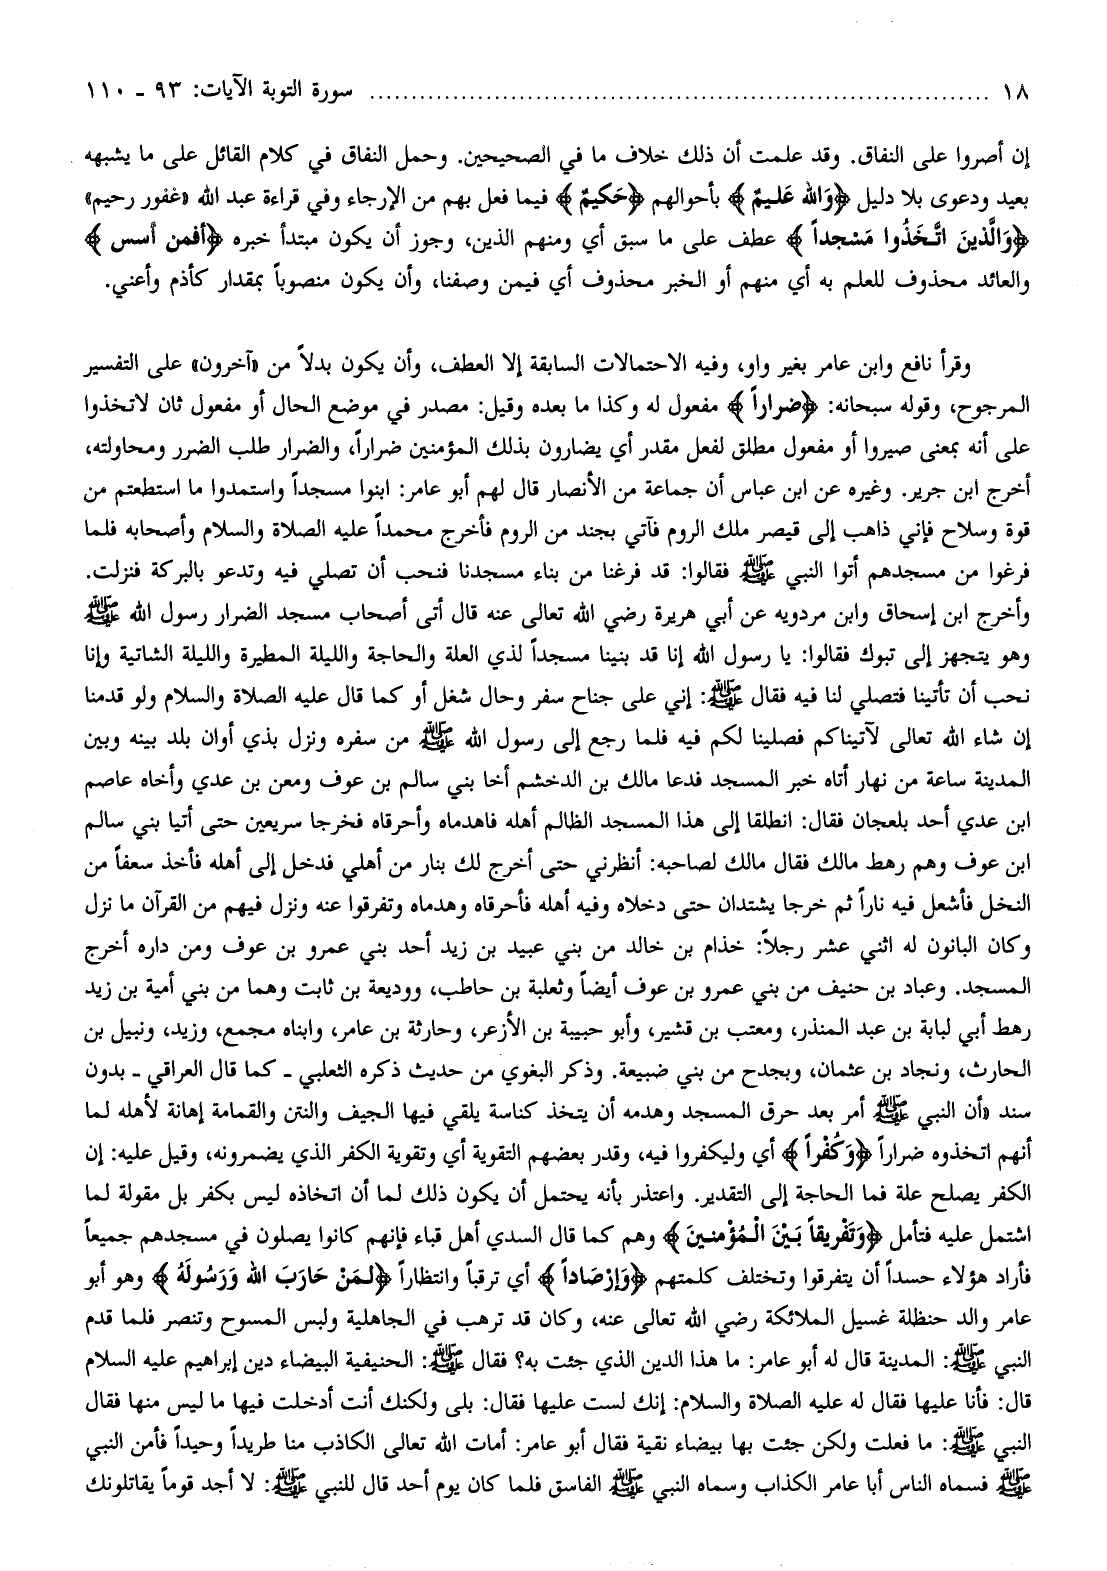 ١٨ ........................................................................ سورة التوبة الآيات: ٩٣ ـ ١١٠
إن أصروا على النفاق. وقد علمت أن ذلك خلاف ما في الصحيحين. وحمل النفاق في كلام القائل على ما يشبهه
بعيد ودعوى بلا دليل ﴿وَالله عَليـمٌ﴾ بأحوالهم ﴿حَكيمٌ﴾ فيما فعل بهم من الإرجاء وفي قراءة عبد الله «غفور رحيم»
﴿وَالَّذينَ اتَّخَذُوا مَسْجداً﴾ عطف على ما سبق أي ومنهم الذين، وجوز أن يكون مبتدأ خبره ﴿أفمن أسس﴾
والعائد محذوف للعلم به أي منهم أو الخبر محذوف أي فيمن وصفنا، وأن يكون منصوباً بمقدار كأذم وأعني.
وقرأ نافع وابن عامر بغير واو، وفيه الاحتمالات السابقة إلا العطف، وأن يكون بدلاً من «آخرون» على التفسير
المرجوح، وقوله سبحانه: ﴿ضراراً﴾ مفعول له وكذا ما بعده وقيل: مصدر في موضع الحال أو مفعول ثان لاتخذوا
على أنه بمعنى صيروا أو مفعول مطلق لفعل مقدر أي يضارون بذلك المؤمنين ضراراً، والضرار طلب الضرر ومحاولته،
أخرج ابن جرير. وغيره عن ابن عباس أن جماعة من الأنصار قال لهم أبو عامر: ابنوا مسجداً واستمدوا ما استطعتم من
قوة وسلاح فإني ذاهب إلى قيصر ملك الروم فآتي بجند من الروم فأخرج محمداً عليه الصلاة والسلام وأصحابه فلما
فرغوا من مسجدهم أتوا النبي ﷺ فقالوا: قد فرغنا من بناء مسجدنا فنحب أن تصلي فيه وتدعو بالبركة فنزلت.
وأخرج ابن إسحاق وابن مردويه عن أبي هريرة رضي الله تعالى عنه قال أتى أصحاب مسجد الضرار رسول الله ﷺ
وهو يتجهز إلى تبوك فقالوا: يا رسول الله إنا قد بنينا مسجداً لذي العلة والحاجة والليلة المطيرة والليلة الشاتية وإنا
نحب أن تأتينا فتصلي لنا فيه فقال ﷺ: إني على جناح سفر وحال شغل أو كما قال عليه الصلاة والسلام ولو قدمنا
إن شاء الله تعالى لآتيناكم فصلينا لكم فيه فلما رجع إلى رسول الله ﷺ من سفره ونزل بذي أوان بلد بينه وبين
المدينة ساعة من نهار أتاه خبر المسجد فدعا مالك بن الدخشم أخا بني سالم بن عوف ومعن بن عدي وأخاه عاصم
ابن عدي أحد بلعجان فقال: انطلقا إلى هذا المسجد الظالم أهله فاهدماه وأحرقاه فخرجا سريعين حتى أتيا بني سالم
ابن عوف وهم رهط مالك فقال مالك لصاحبه: أنظرني حتى أخرج لك بنار من أهلي فدخل إلى أهله فأخذ سعفاً من
النخل فأشعل فيه ناراً ثم خرجا يشتدان حتى دخلاه وفيه أهله فأحرقاه وهدماه وتفرقوا عنه ونزل فيهم من القرآن ما نزل
وكان البانون له اثني عشر رجلاً: خذام بن خالد من بني عبيد بن زيد أحد بني عمرو بن عوف ومن داره أخرج
المسجد. وعباد بن حنيف من بني عمرو بن عوف أيضاً وثعلبة بن حاطب، ووديعة بن ثابت وهما من بني أمية بن زيد
رهط أبي لبابة بن عبد المنذر، ومعتب بن قشير، وأبو حبيبة بن الأزعر، وحارثة بن عامر، وابناه مجمع، وزيد، ونبيل بن
الحارث، ونجاد بن عثمان، وبجدح من بني ضبيعة. وذكر البغوي من حديث ذكره الثعلبي ـ كما قال العراقي ـ بدون
سند «أن النبي ﷺ أمر بعد حرق المسجد وهدمه أن يتخذ كناسة يلقي فيها الجيف والنتن والقمامة إهانة لأهله لما
أنهم اتخذوه ضراراً ﴿وَكُفْراً﴾ أي وليكفروا فيه، وقدر بعضهم التقوية أي وتقوية الكفر الذي يضمرونه، وقيل عليه: إن
الكفر يصلح علة فما الحاجة إلى التقدير. واعتذر بأنه يحتمل أن يكون ذلك لما أن اتخاذه ليس بكفر بل مقولة لما
اشتمل عليه فتأمل ﴿وَتَفْريقاً بَيْنَ الْـمُؤْمنـينَ﴾ وهم كما قال السدي أهل قباء فإنهم كانوا يصلون في مسجدهم جميعاً
فأراد هؤلاء حسداً أن يتفرقوا وتختلف كلمتهم ﴿وَإرْصَاداً﴾ أي ترقباً وانتظاراً ﴿لـمَنْ حَارَبَ الله وَرَسُولَهُ﴾ وهو أبو
عامر والد حنظلة غسيل الملائكة رضي الله تعالى عنه، وكان قد ترهب في الجاهلية ولبس المسوح وتنصر فلما قدم
النبي ﷺ: المدينة قال له أبو عامر: ما هذا الدين الذي جئت به؟ فقال ﷺ: الحنيفية البيضاء دين إبراهيم عليه السلام
قال: فأنا عليها فقال له عليه الصلاة والسلام: إنك لست عليها فقال: بلى ولكنك أنت أدخلت فيها ما ليس منها فقال
النبي ﷺ: ما فعلت ولكن جئت بها بيضاء نقية فقال أبو عامر: أمات الله تعالى الكاذب منا طريداً وحيداً فأمن النبي
ﷺ فسماه الناس أبا عامر الكذاب وسماه النبي ﷺ الفاسق فلما كان يوم أحد قال للنبي ﷺ: لا أجد قوماً يقاتلونك